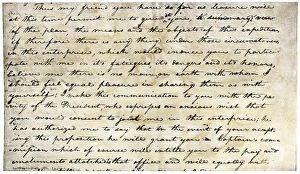 Thus my friend you have so far as leisure will
at this time permit me to give it you, a summary view
of the plan, the means and the objects of this expedition
if therefore there is any thing under those circumstances
in this enterprise, which would induce you to partici-
pate with me in its fatiegues, its dangers and its honors,
believe me there is no man on earth with whom I
should feel equal pleasure in sharing them as with
yourself; I make this communication to you with the
of the President who expresses an anxious wish that
you would consent to join me in this enterprise; he
has authorized me to say that in the event of your accept-
ing this proposition he will grant you a Captain's com-
mission which of course will intitle you to the pay and
emoluments attached to that office and will equally